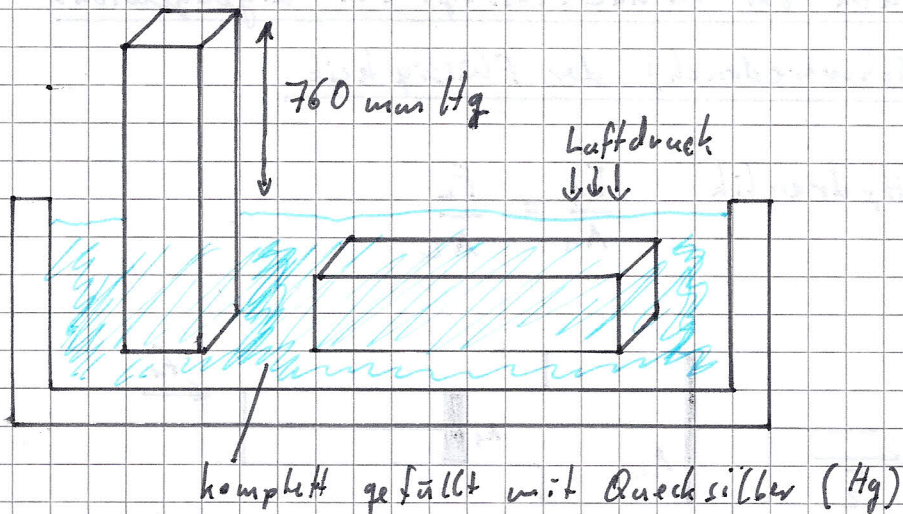 760 mm Hg
Luftdruck
komplett gefüllt mit Quecksilber (Hg)